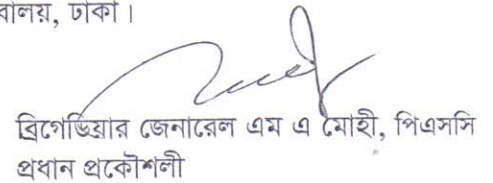 বালয়, ঢাকা।
ব্রিগেডিয়ার জেনারেল এম এ মোহী, পিএসসি
প্রধান প্রকৌশলী